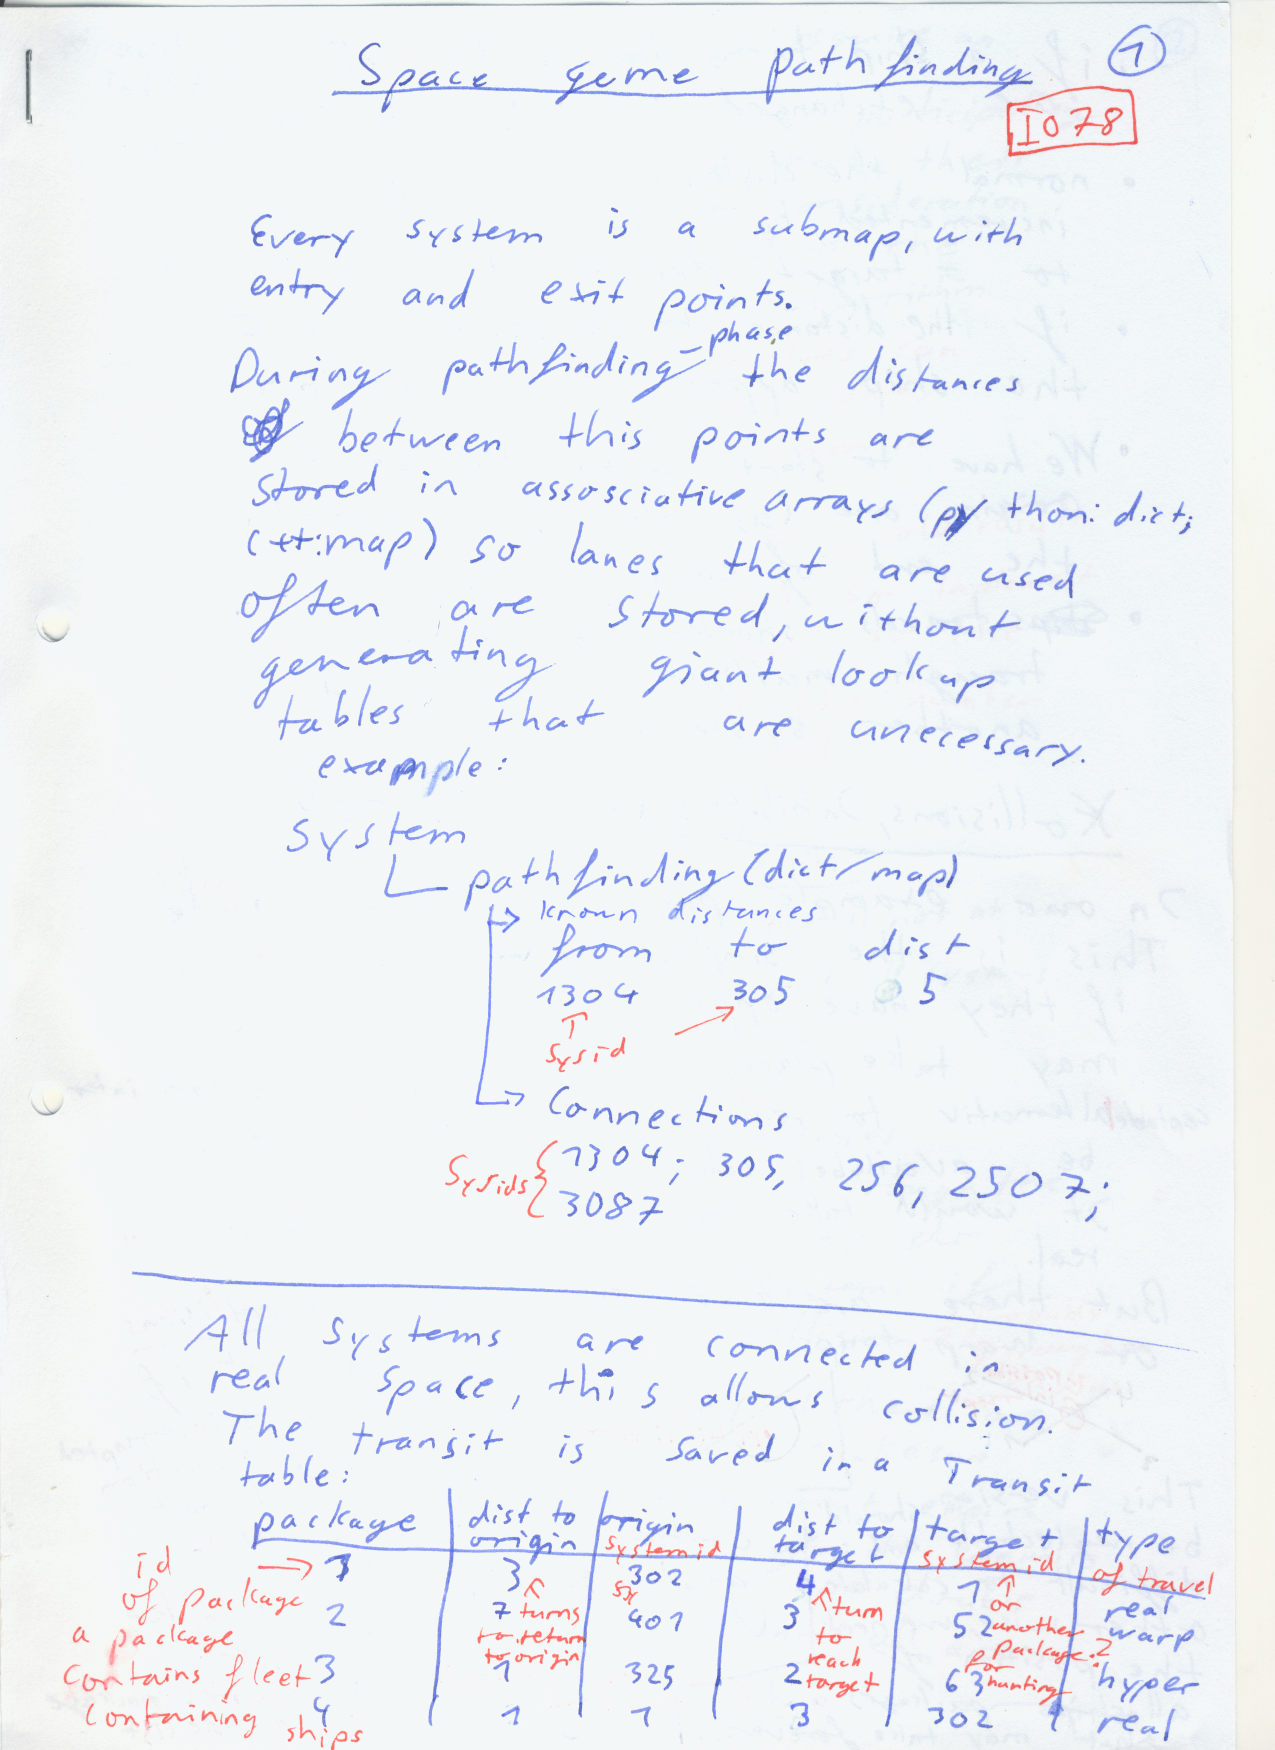 Space game pathfinding 1
I078
Every system is a submap, with
entry and exit points.
During pathfinding-phase the distances
between this points are
stored in assosciative arrays (python: dict;
C++:map) so lanes that are used
often are stored, without
generating giant lookup
tables that are unecessary.
example:
System
pathfinding (dict/map)
known distances
from to dist
1304 305 5
sysid
Connections
Sysids
1304; 305, 256, 2507;
3087
All systems are connected in
real space, this allows collision.
The transit is saved in a Transit
table:
package | dist to origin | origin systemid | dist to target | target systemid | type of travel
1 | 3 | 302 | 4 | 1 | real
2 | 7 | 401 | 3 | 52 | warp
3 | 1 | 325 | 2 | 63 | hyper
4 | 1 | 1 | 3 | 302 | real
id
of package
a package
contains fleet
containing ships
turns
to return
to origin
turn
to
reach
target
or
another
package?
for
hunting